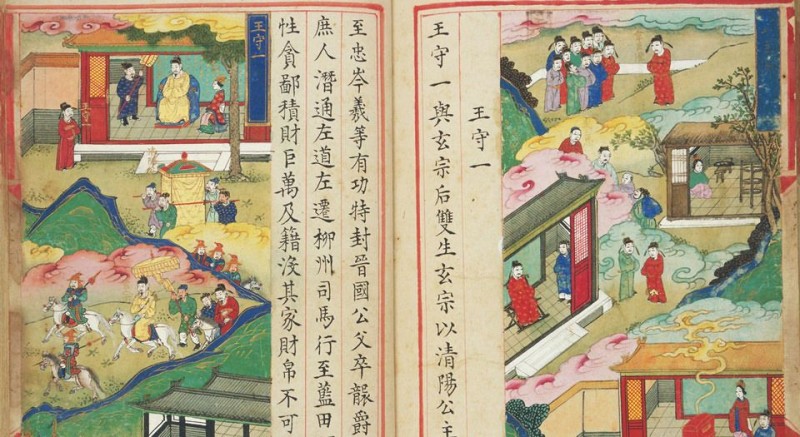 王守一
王守一與玄宗后雙生玄宗以清陽公主
至忠岑羲等有功特封晉國公父卒襲爵
庶人潛通左道左遷柳州司馬行至藍田
性貪鄙積財巨萬及籍沒其家財帛不可
王守一
王守一